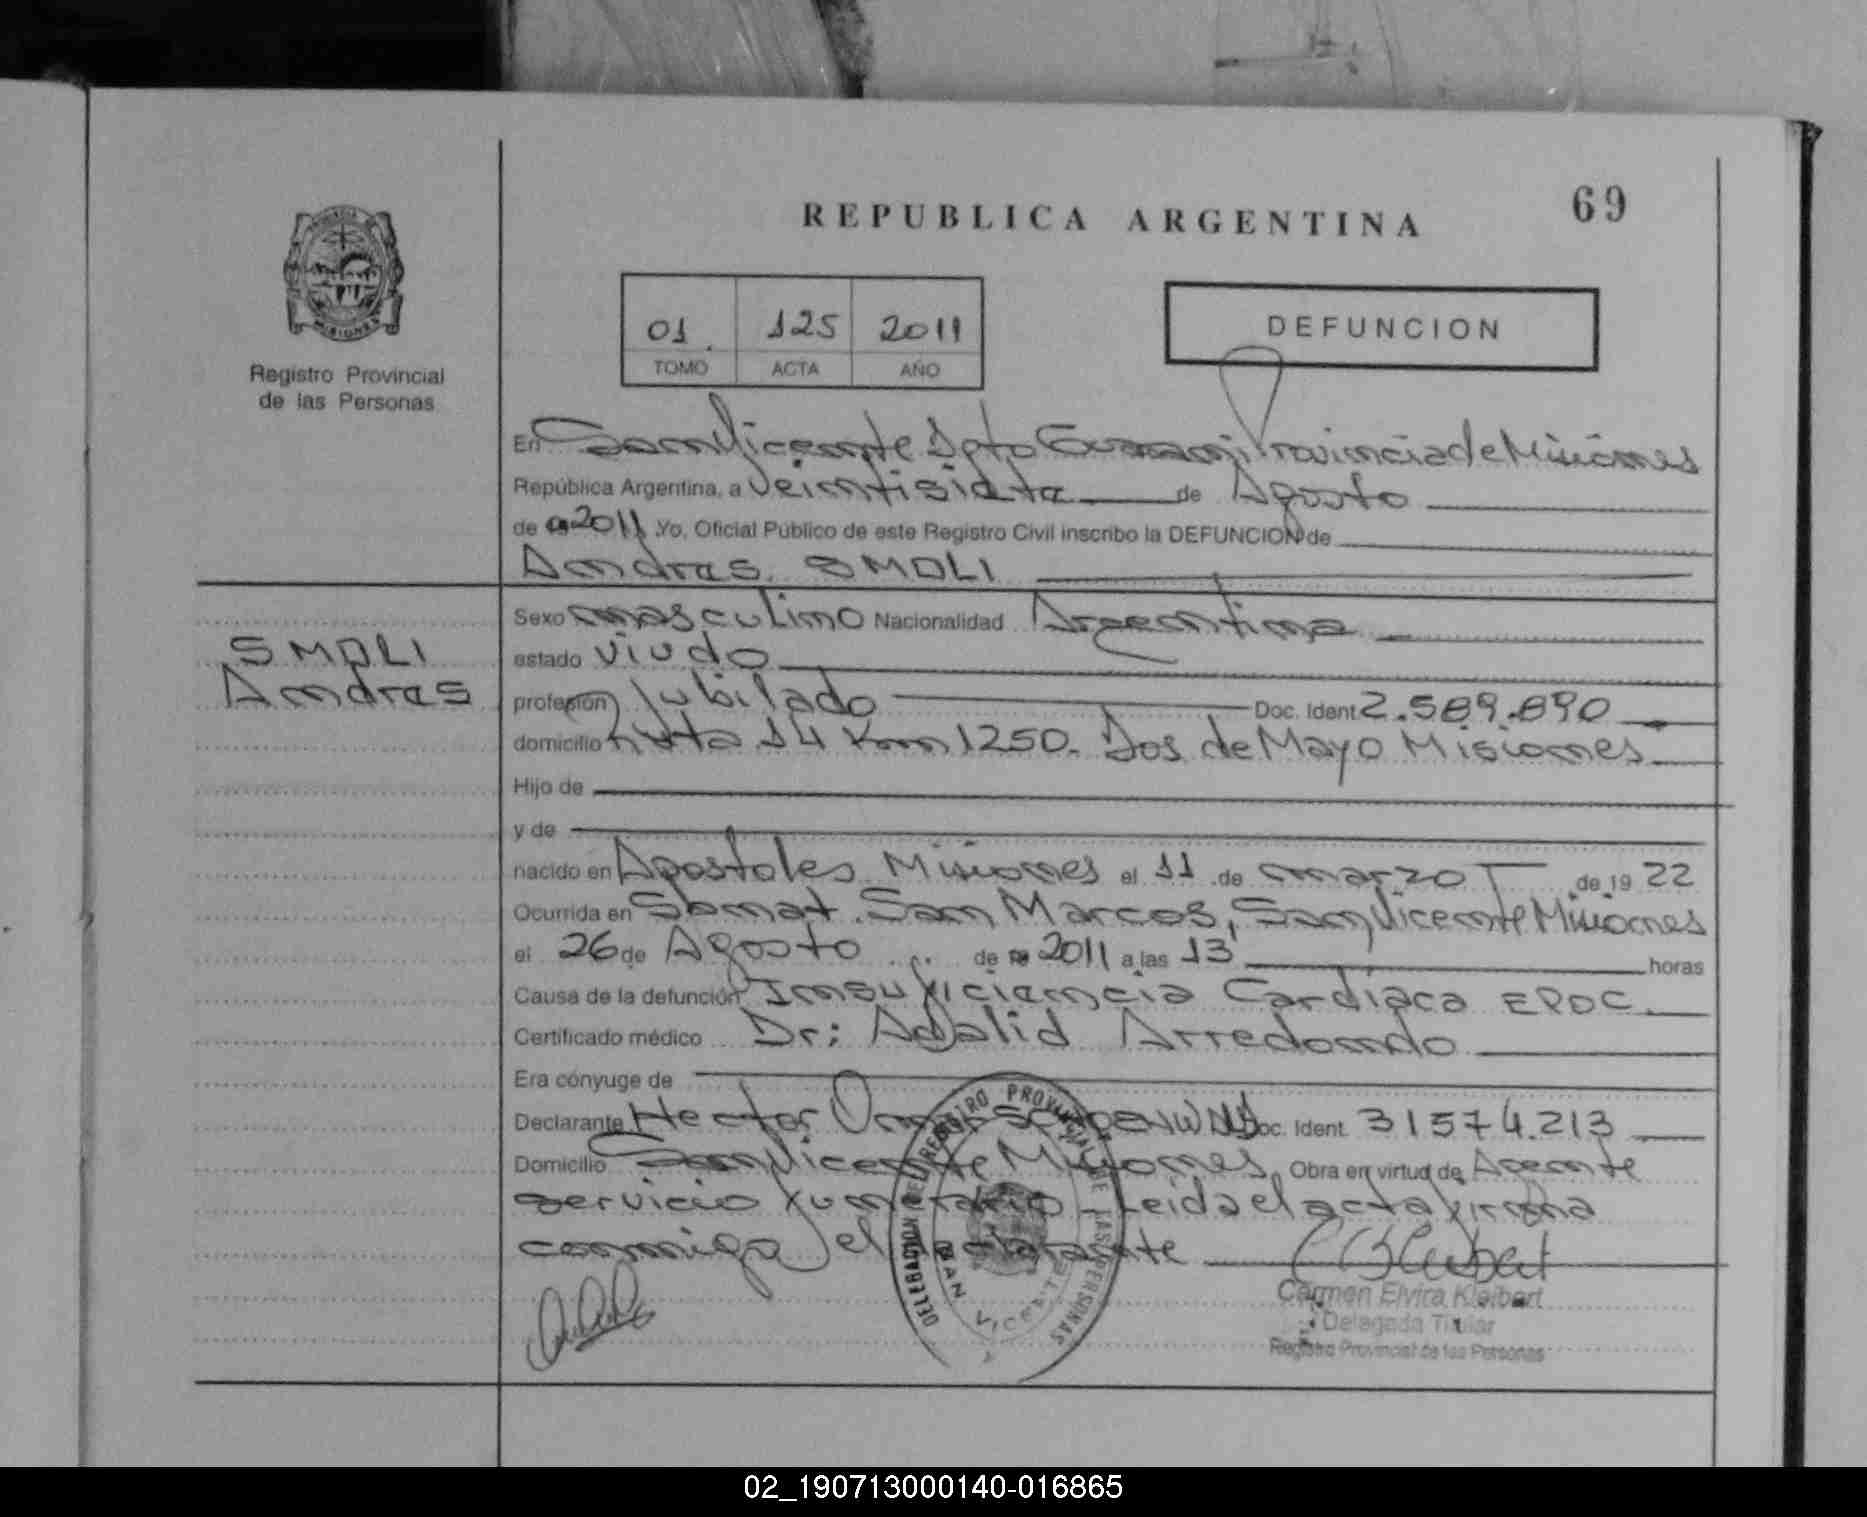 REPUBLICA ARGENTINA
69
MISIONES
Registro Provincial
de las Personas
01. 125 2011
TOMO ACTA AÑO
DEFUNCION
En San Vicente Dpto Guarani Provincia de Misiones
República Argentina, a veintisiete de Agosto
de 2011 Yo, Oficial Público de este Registro Civil inscribo la DEFUNCION de
Andres SMOLI
SMOLI
Andres
Sexo masculino Nacionalidad Argentina
estado viudo
profesión Jubilado Doc. Ident. 2.589.890
domicilio ruta 14 Km 1250. Dos de Mayo Misiones
Hijo de
y de
nacido en Apostoles Misiones el 11 de marzo de 19 22
Ocurrida en Sanat. San Marcos, San Vicente Misiones
el 26 de Agosto de 2011 a las 13 horas
Causa de la defunción Insuficiencia Cardiaca EPOC
Certificado médico Dr: Adalid Arredondo
Era cónyuge de
Declarante Hector Omar Doc. Ident. 31574.213
Domicilio San Vicente Misiones Obra en virtud de Agente
servicio funerario Leida el acta firma
conmigo el declarante
DELEGACION DEL REGISTRO PROVINCIAL DE LAS PERSONAS
SAN VICENTE
Carmen Elvira Kleibert
Delegada Titular
Registro Provincial de las Personas
02_190713000140-016865